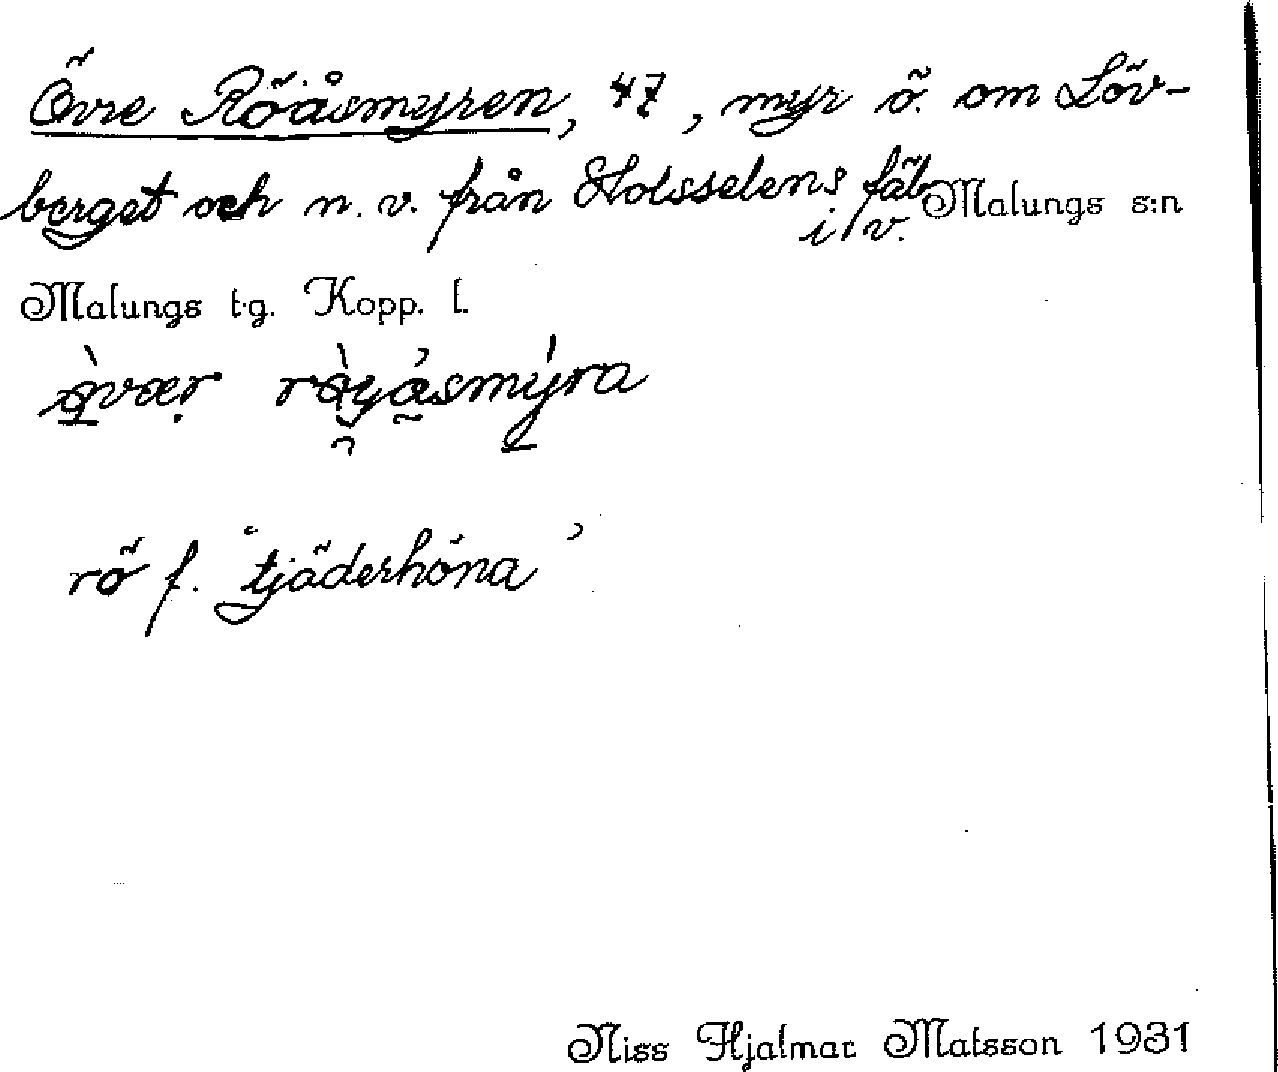 Övre Röåsmyren, 47, myr ö. om Löv-
berget och n. v. från Holsselens fäb.
i v.
Malungs s:n
Malungs t.g. Kopp. l.
rö f. 'tjäderhöna'
Niss Hjalmar Matsson 1931